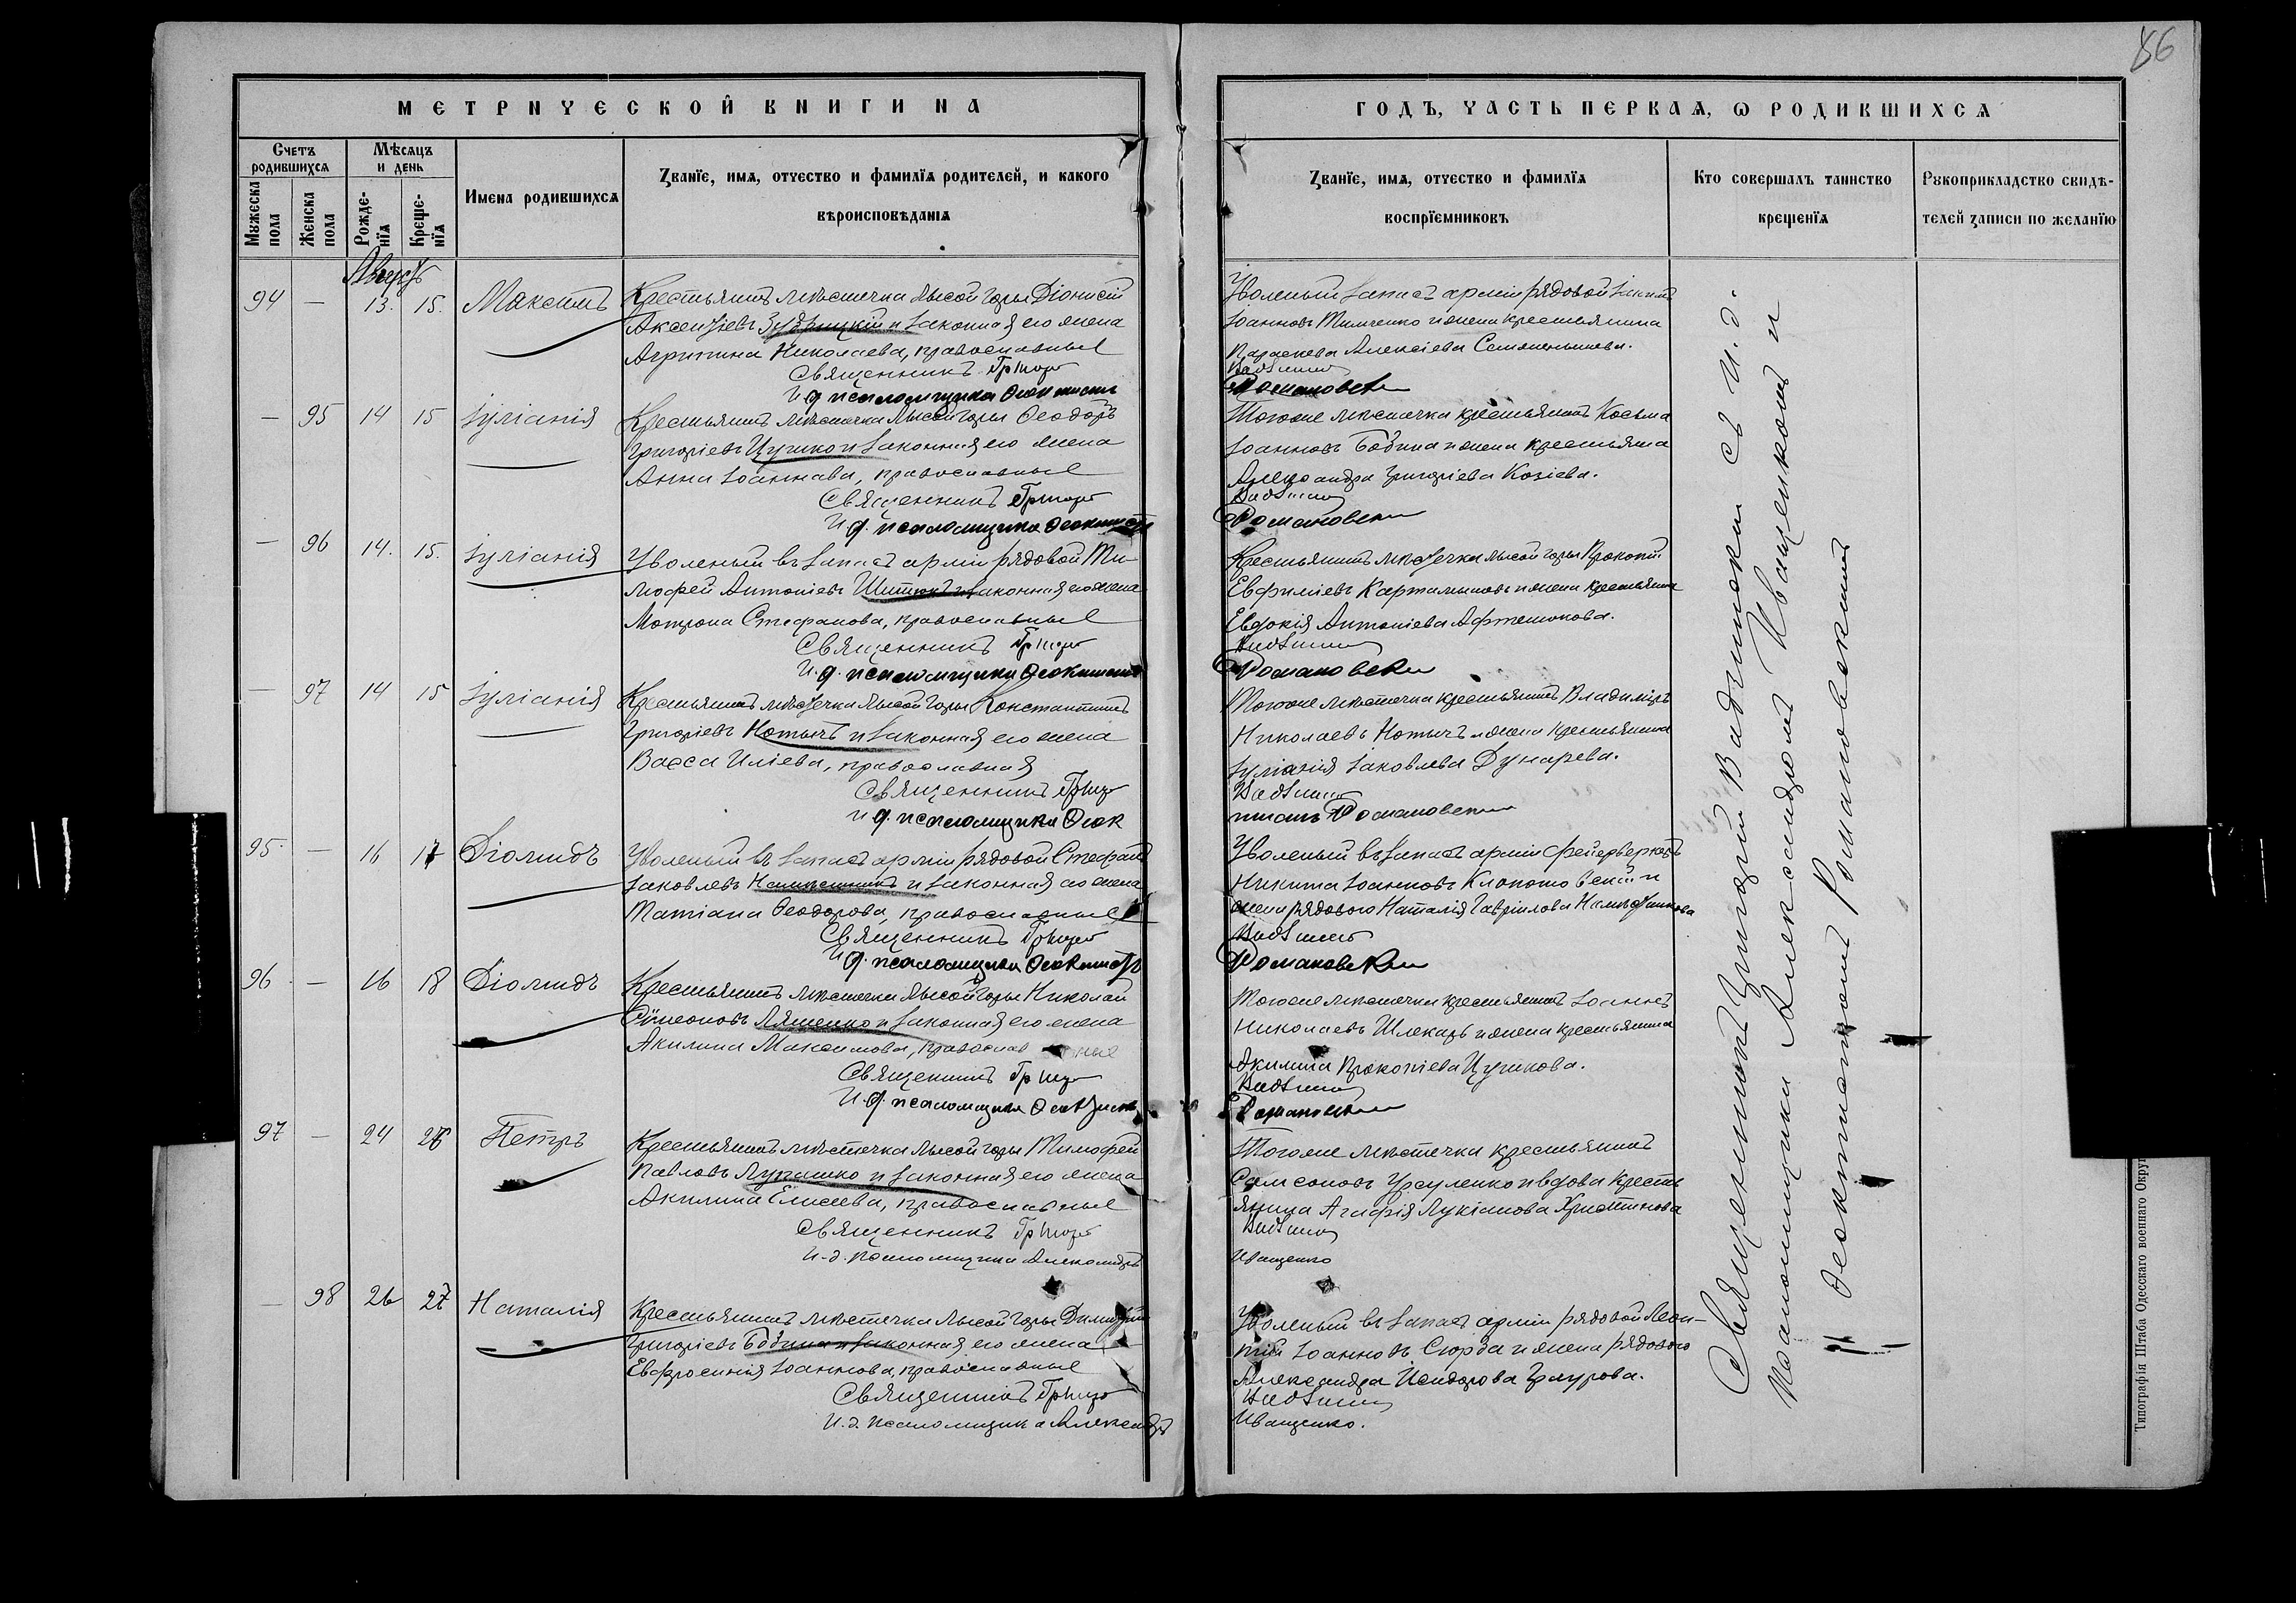 86
МЕТРИЧЕСКОЙ КНИГИ НА
ГОДЪ, ЧАСТЬ ПЕРВАЯ, Ѡ РОДИВШИХСЯ
Счетъ родившихся
Мужеска пола
Женска пола
Мѣсяцъ и день
Рожде-нїя
Креще-нїя
Имена родившихся
Званїе, имя, отчество и фамилїя родителей, и какого
вѣроисповѣданія
Званїе, имя, отчество и фамилїя
воспрїемниковъ
Кто совершалъ таинство
крещенїя
Рукоприкладство свидѣ-
телей записи по желанїю
Августъ
94 — 13. 15. Максимъ
Крестьянинъ мѣстечка Лысой Горы Діонисій
Аксентіевъ и законная его жена
Агрипина Николаева, православные
Священникъ Григор
И д псаломщика Феоктистъ
Уволеный запасъ арміи рядовой Іакимъ
Іоанновъ Тимченко и жена крестьянина
Параскева Алексіева
Вадзинскі
Романовскі
— 95 14 15 Іуліанія
Крестьянинъ мѣстечка Лысой Горы Феодоръ
Григоріевъ Цушко и законная его жена
Анна Іоаннова, православные
Священникъ Григор
И д. псаломщика Феоктистъ
Тогоже мѣстечка крестьянинъ Косьма
Іоанновъ Бабина и жена крестьянина
Александра Григоріева Козіева.
Вадзинскі
Романовскі
— 96 14. 15. Іуліанія
Уволеный въ запасъ арміи рядовой Ти-
мофей Антоніевъ и законная его жена
Матрона Стефанова, православные
Священникъ Григор
И. д. псаломщика Феоктистъ
Крестьянинъ мѣстечка Лысой Горы Прокопій
Евфиміевъ и жена крестьянина
Евдокія Антоніева
Вадзинскі
Романовскі
— 97 14 15 Іуліанія
Крестьянинъ мѣстечка Лысой Горы Константинъ
Григоріевъ Нотычъ и законная его жена
Васса Иліева, православная
Священникъ Григор
И д. псаломщика Феок
Тогоже мѣстечка крестьянинъ Владиміръ
Николаевъ Нотычъ и жена крестьянина
Іуліанія Іаковлева Дунарева.
Вадзинскі
тистъ Романовскі
95 — 16 17 Діомидъ
Уволеный въ запасъ арміи рядовой Стефанъ
Іаковлевъ и законная его жена
Татіана Феодорова, православные
Священникъ Григор
И д. псаломщика Феоктистъ
Уволеный въ запасъ арміи фейерверкеръ
Никита Іоанновъ Клопотовскій и
жена рядового Наталія Гавріилова
Вадзинскі
Романовскі
96 — 16 18 Діомидъ
Крестьянинъ мѣстечка Лысой Горы Николай
Сѵмеоновъ Ляшенко и законная его жена
Акилина Максимова, православные
Священникъ Григор
И. д. псаломщика Феоктистъ
Тогоже мѣстечка крестьянинъ Іоаннъ
Николаевъ Шлекарь и жена крестьянина
Акилина Прокопіева Цушкова.
Вадзинскі
Романовскі
97 — 24 26 Петръ
Крестьянинъ мѣстечка Лысой Горы Тимофей
Павловъ Лупашко и законная его жена
Акилина Елисеева, православные
Священникъ Григор
И. д. псаломщика Александръ
Тогоже мѣстечка крестьянинъ
Самсоновъ Урсуленко и вдова кресть
янина Агафія Лукіанова
Вадзинскі
Иващенко
— 98 26 27 Наталія
Крестьянинъ мѣстечка Лысой Горы Димитрій
Григоріевъ Бабина и законная его жена
Евфросинія Іоаннова, православные
Священникъ Григор
И. д. псаломщика Александръ
Уволеный въ запасъ арміи рядовой Леон-
тій Іоанновъ Сюрда и жена рядового
Александра Исидорова
Вадзинскі
Иващенко.
Священникъ Григорій Вадзинскі съ и. д.
псаломщика Александромъ Иващенкомъ и
Феоктистомъ Романовскимъ
Типографія Штаба Одесскаго военнаго Округ